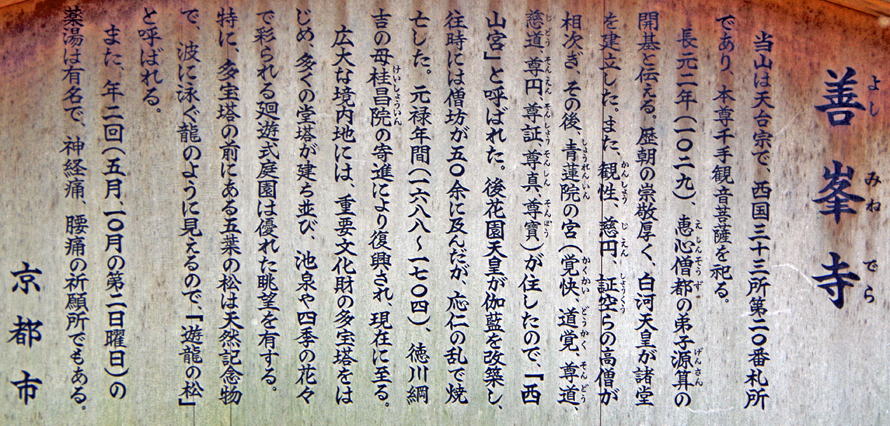 善峯寺
よしみねでら
当山は天台宗で、西国三十三所第二〇番札所
であり、本尊千手観音菩薩を祀る。
長元二年(一〇二九)、恵心僧都の弟子源算の
開基と伝える。歴朝の崇敬厚く、白河天皇が諸堂
を建立した。また、観性、慈円、証空らの高僧が
相次ぎ、その後、青蓮院の宮(覚快、道覚、尊道、
慈道、尊円、尊証、尊真、尊寳)が住したので、「西
山宮」と呼ばれた。後花園天皇が伽藍を改築し、
往時には僧坊が五〇余に及んだが、応仁の乱で焼
亡した。元禄年間(一六八八〜一七〇四)、徳川綱
吉の母桂昌院の寄進により復興され、現在に至る。
広大な境内地には、重要文化財の多宝塔をは
じめ、多くの堂塔が建ち並び、池泉や四季の花々
で彩られる廻遊式庭園は優れた眺望を有する。
特に、多宝塔の前にある五葉の松は天然記念物
で、波に泳ぐ龍のように見えるので、「遊龍の松」
と呼ばれる。
また、年二回(五月、一〇月の第二日曜日)の
薬湯は有名で、神経痛、腰痛の祈願所でもある。
京都市